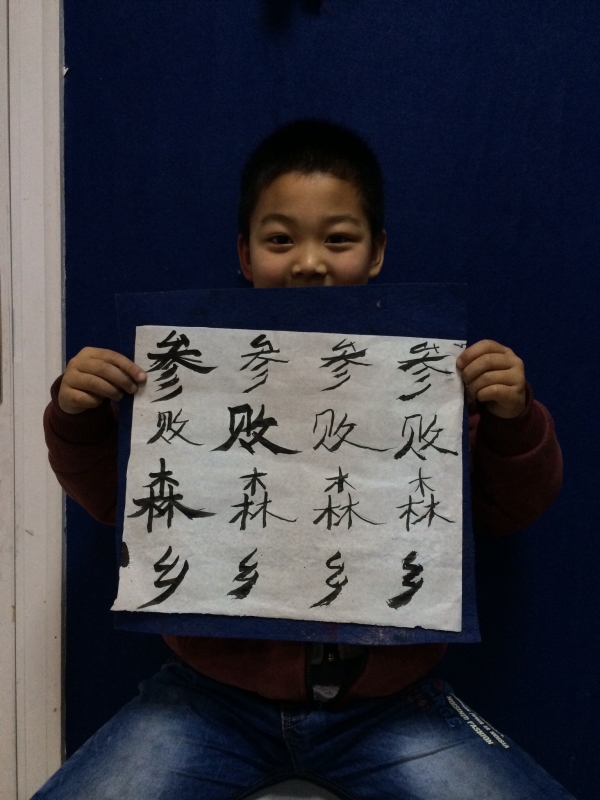 参参参参
败败败败
森森森森
乡乡乡乡